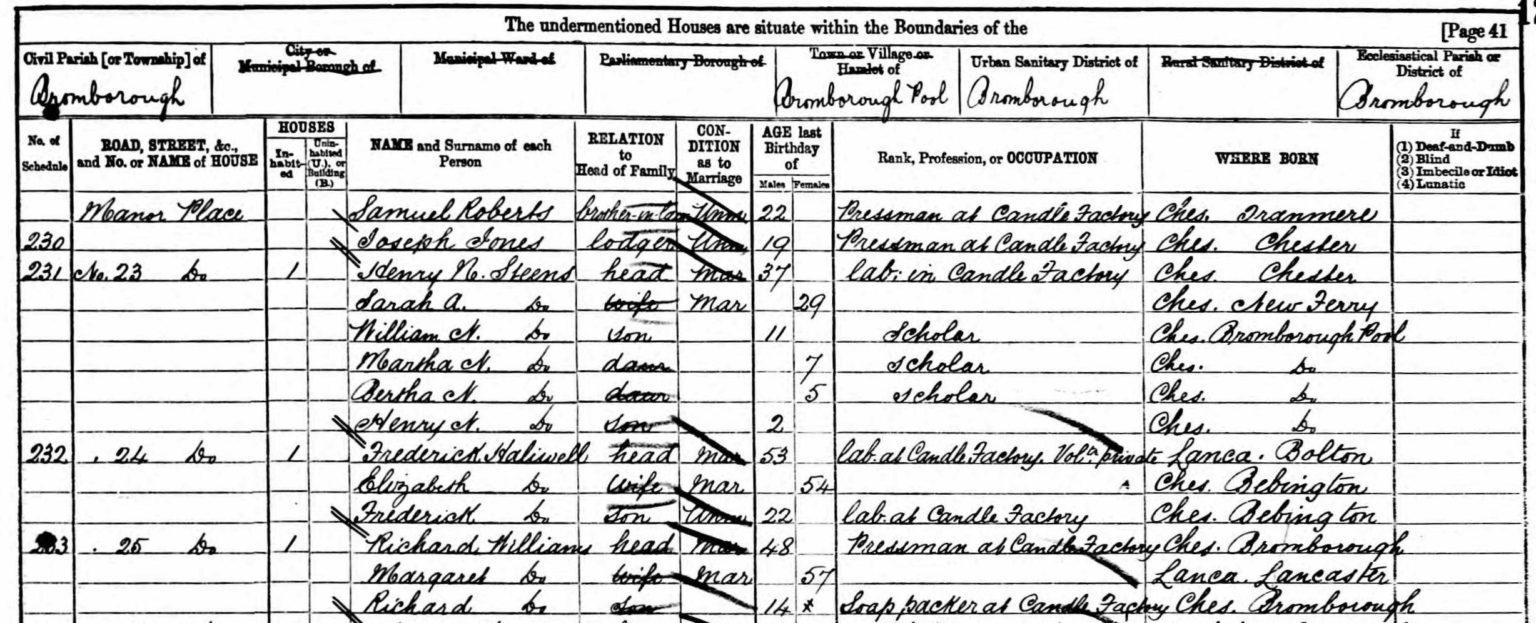 The undermentioned Houses are situate within the Boundaries of the [Page 41
Civil Parish [or Township] of City or Municipal Borough of Municipal Ward of Parliamentary Borough of Town or Village or Hamlet of Urban Sanitary District of Rural Sanitary District of Ecclesiastical Parish or District of
Bromborough Bromborough Pool Bromborough Bromborough
No. of Schedule ROAD, STREET, &c., and No. or NAME of HOUSE HOUSES In-habit-ed Unin-habited (U.), or Building (B.) NAME and Surname of each Person RELATION to Head of Family CON-DITION as to Marriage AGE last Birthday of Males Females Rank, Profession, or OCCUPATION WHERE BORN If (1) Deaf-and-Dumb (2) Blind (3) Imbecile or Idiot (4) Lunatic
Manor Place Samuel Roberts brother-in-law Unm 22 Pressman at Candle Factory Ches. Tranmere
230 Joseph Jones lodger Unm 19 Pressman at Candle Factory Ches. Chester
231 No. 23 Do 1 Henry N. Steens head Mar 37 lab: in Candle Factory Ches. Chester
Sarah A. Do wife Mar 29 Ches. New Ferry
William N. Do son 11 Scholar Ches. Bromborough Pool
Martha N. Do daur 7 scholar Ches. Do
Bertha N. Do daur 5 scholar Ches. Do
Henry N. Do son 2 Ches. Do
232 . 24 Do 1 Frederick Haliwell head Mar 53 lab. at Candle Factory. Vol. private Lanca. Bolton
Elizabeth Do wife Mar 54 Ches. Bebington
Frederick Do son Unm 22 lab. at Candle Factory Ches. Bebington
233 . 25 Do 1 Richard Williams head Mar 48 Pressman at Candle Factory Ches. Bromborough
Margaret Do wife Mar 57 Lanca. Lancaster
Richard Do son 14 * Soap packer at Candle Factory Ches. Bromborough